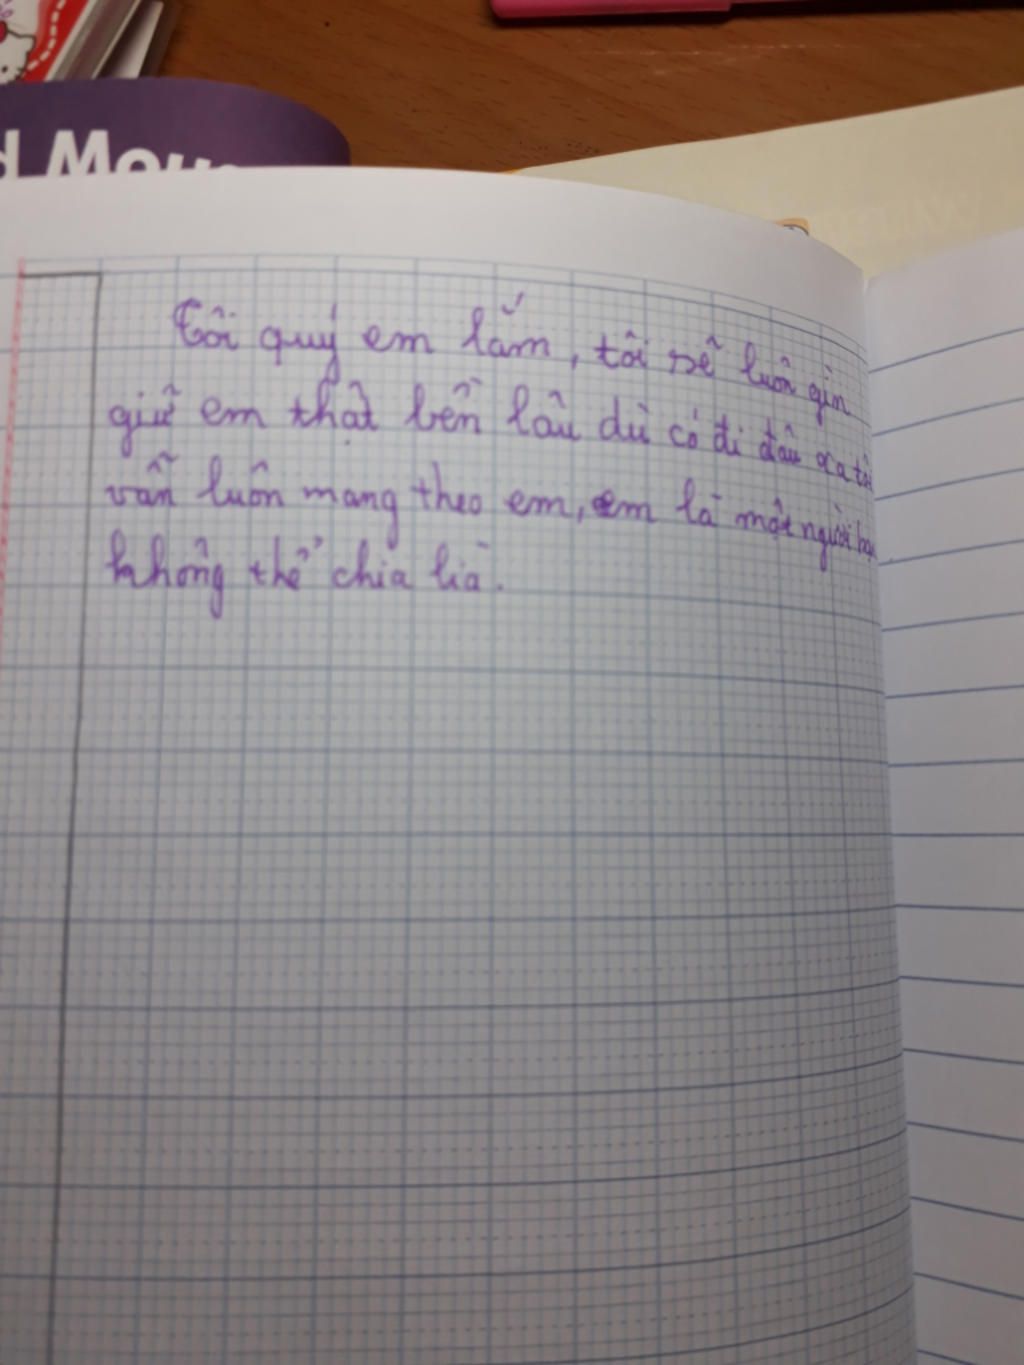 d Mou
Tôi quý em lắm, tôi sẽ luôn gìn
giữ em thật bền lâu dù có đi đâu xa tôi
vẫn luôn mang theo em, em là một người bạn
không thể chia lìa.